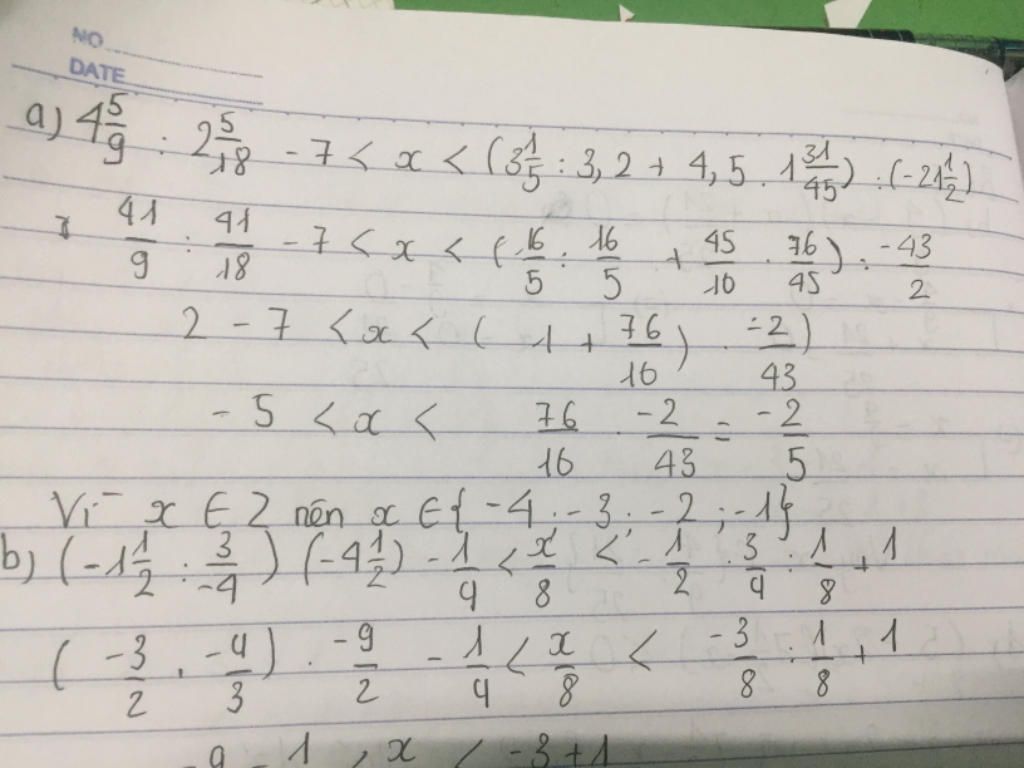 NO
DATE
a) 4 5/9 : 2 5/18 - 7 < x < (3 1/5 : 3,2 + 4,5 . 1 31/45) : (-21 1/2)
41/9 : 41/18 - 7 < x < (16/5 : 16/5 + 45/10 . 76/45) : -43/2
2 - 7 < x < (1 + 76/10) . -2/43)
-5 < x < 76/10 . -2/43 = -2/5
Vì x ∈ Z nên x ∈ { -4 ; -3 ; -2 ; -1}
b) (-1 1/2 : 3/-4) (-4 1/2) - 1/4 < x/8 < -1/2 . 3/4 : 1/8 + 1
( -3/2 . -4/3 ) . -9/2 - 1/4 < x/8 < -3/8 : 1/8 + 1
-9 - 1 < x < -3+1